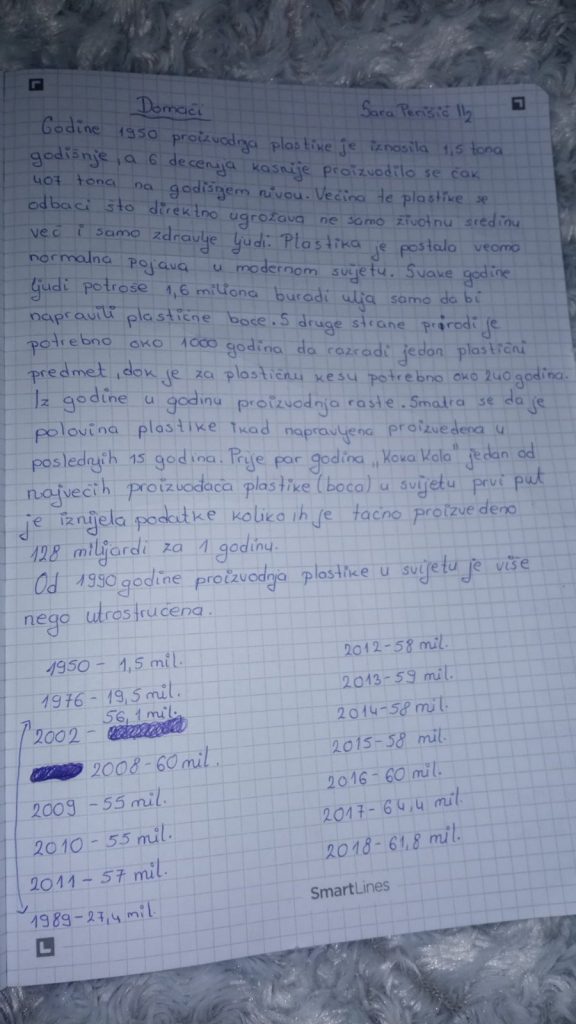 Domaći
Sara Perišić II2
Godine 1950 proizvodnja plastike je iznosila 1,5 tona
godišnje, a 6 decenija kasnije proizvodilo se čak
407 tona na godišnjem nivou. Većina te plastike se
odbaci što direktno ugrožava ne samo životnu sredinu
već i samo zdravlje ljudi. Plastika je postala veoma
normalna pojava u modernom svijetu. Svake godine
ljudi potroše 1,6 miliona buradi ulja samo da bi
napravili plastične boce. S druge strane prirodi je
potrebno oko 1000 godina da razradi jedan plastični
predmet, dok je za plastičnu kesu potrebno oko 240 godina.
Iz godine u godinu proizvodnja raste. Smatra se da je
polovina plastike ikad napravljena proizvedena u
poslednjih 15 godina. Prije par godina „Koka Kola" jedan od
najvećih proizvođača plastike (boca) u svijetu prvi put
je iznijela podatke koliko ih je tačno proizvedeno
128 milijardi za 1 godinu.
Od 1990 godine proizvodnja plastike u svijetu je više
nego utrostručena.
1950 - 1,5 mil.
1976 - 19,5 mil.
56,1 mil.
2002 -
2008 - 60 mil.
2009 - 55 mil.
2010 - 55 mil.
2011 - 57 mil.
1989 - 27,4 mil.
2012 - 58 mil.
2013 - 59 mil.
2014 - 58 mil.
2015 - 58 mil.
2016 - 60 mil.
2017 - 64,4 mil.
2018 - 61,8 mil.
SmartLines